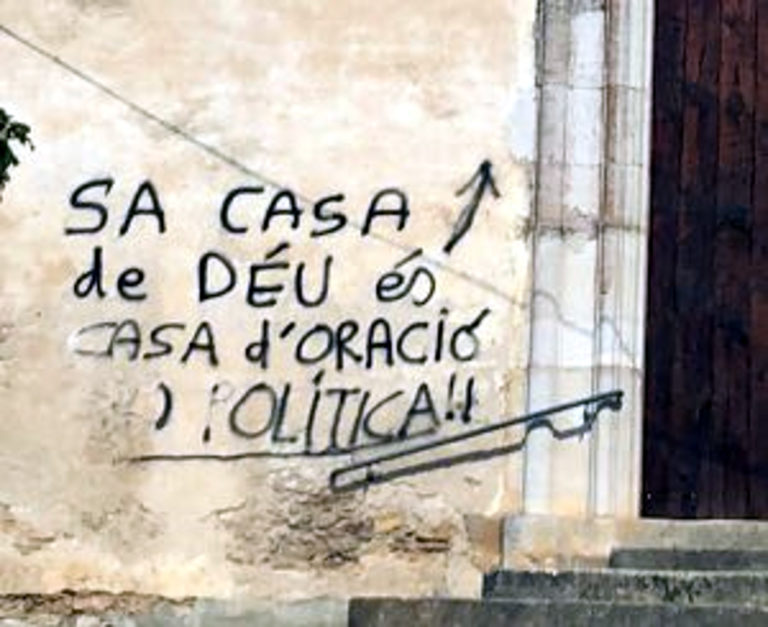 SA CASA
de DÉU és
CASA d'ORACIÓ
POLÍTICA!!